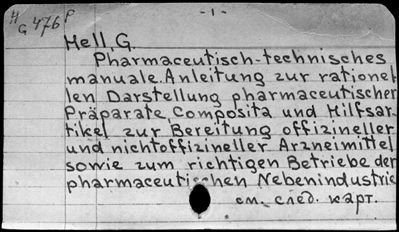 H G 476 P
- 1 -
Hell, G.
Pharmaceutisch-technisches
manuale. Anleitung zur rationel
len Darstellung pharmaceutischer
Präparate, Composita und Hilfsar-
tikel zur Bereitung offizineller
und nichtoffizineller Arzneimittel
sowie zum richtigen Betriebe der
pharmaceutischen Nebenindustrie
см. след. карт.